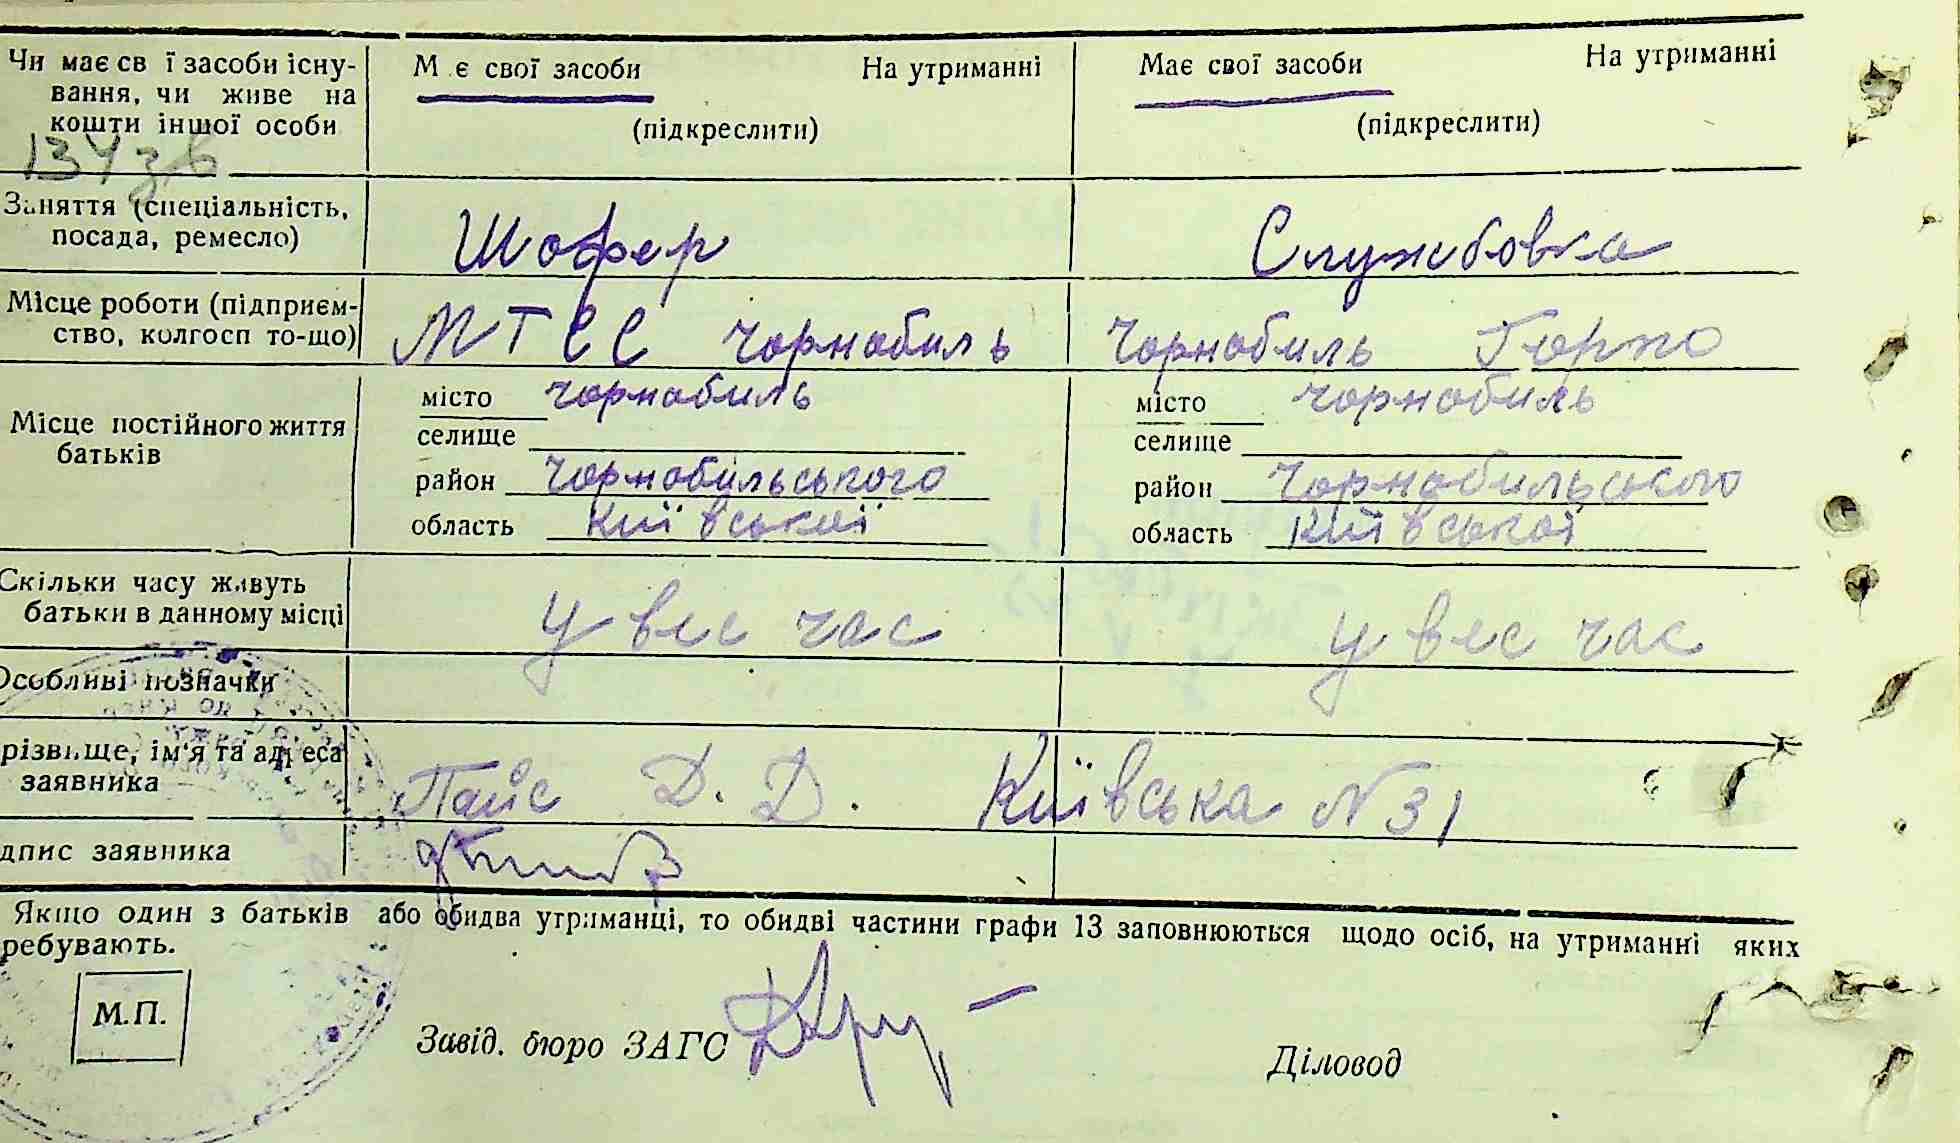 Чи має св ї засоби існу- М є свої засоби На утриманні Має свої засоби На утриманні
вання, чи живе на
кошти іншої особи (підкреслити) (підкреслити)
134 зв
Заняття (спеціальність,
посада, ремесло) Шофер Службовка
Місце роботи (підприєм-
ство, колгосп то-що) МТСС Чорнобиль Чорнобиль Горпо
місто Чорнобиль місто Чорнобиль
Місце постійного життя селище селище
батьків
район Чорнобильського район Чорнобильського
область Київської область Київської
Скільки часу живуть
батьки в данному місці У вес час У вес час
Особливі позначки
різвище, ім'я та адреса
заявника Пайс Д. Д. Київська N 31
дпис заявника
Якщо один з батьків або обидва утриманці, то обидві частини графи 13 заповнюються щодо осіб, на утриманні яких
ребувають.
М.П.
Завід. бюро ЗАГС Діловод